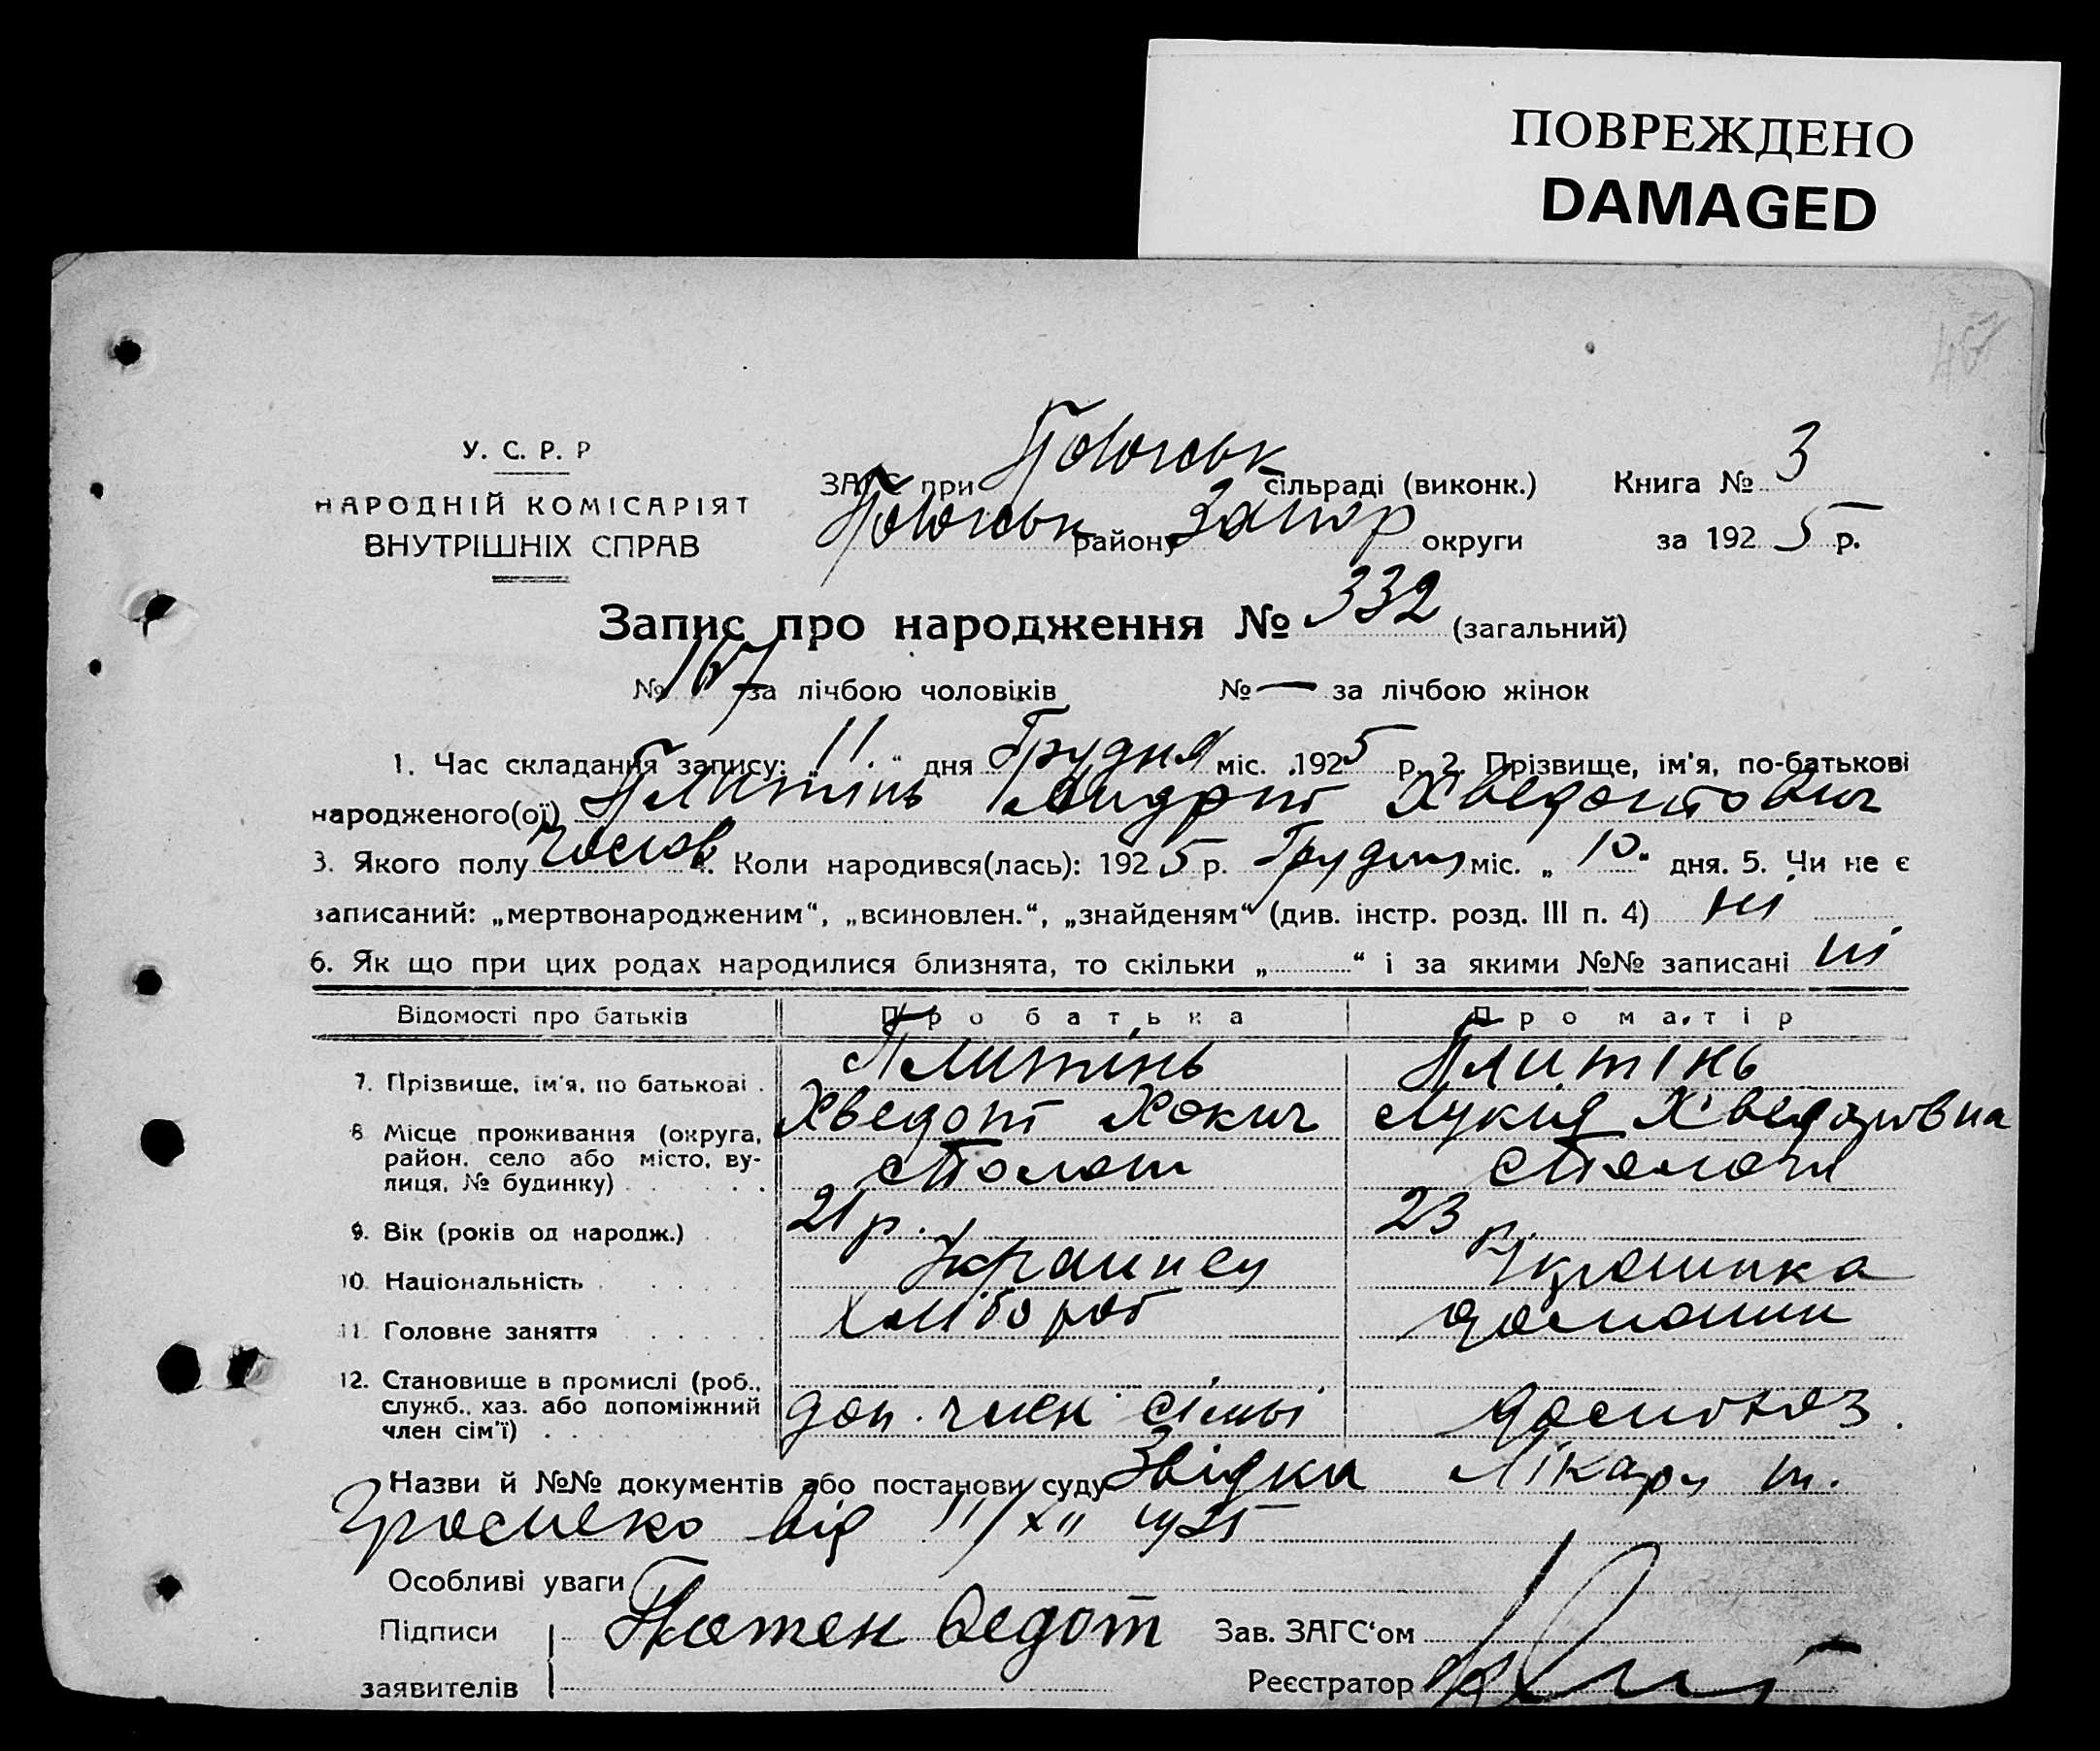 ПОВРЕЖДЕНО
DAMAGED
467
У. С. Р. Р
НАРОДНІЙ КОМІСАРІЯТ
ВНУТРІШНІХ СПРАВ
ЗАГС при сільраді (виконк.) Книга № 3
району Запор округи за 1925 р.
Запис про народження № 332 (загальний)
№ 167 за лічбою чоловіків № — за лічбою жінок
1. Час складання запису: „11“ дня Грудня міс. 1925 р. 2. Прізвище, ім'я, по-батькові
народженого(ої) Плитінь Андрій Хведотович
3. Якого полу чолов 4. Коли народився(лась): 1925 р. Грудня міс. „10“ дня. 5. Чи не є
записаний: „мертвонародженим“, „всиновлен.“, „знайденям“ (див. інстр. розд. III п. 4) ні
6. Як що при цих родах народилися близнята, то скільки „ “ і за якими №№ записані ні
Відомості про батьків Про батька Про матір
7. Прізвище, ім'я, по батькові . Плитінь Плитінь
Хведот Хокич Лукія Хведорівна
8 Місце проживання (округа,
район, село або місто, ву-
лиця, № будинку)
9. Вік (років од народж.) 21 р. 23 р.
10. Національність Украинец Украинка
11. Головне заняття Хлібороб домашн
12. Становище в промислі (роб.,
служб., хаз. або допоміжний
член сім'ї) доп. член сімьі
Назви й №№ документів або постанови суду Звідка Лікаря
від 11/XII 1925
Особливі уваги
Підписи Федот Зав. ЗАГС'ом
заявителів Реєстратор